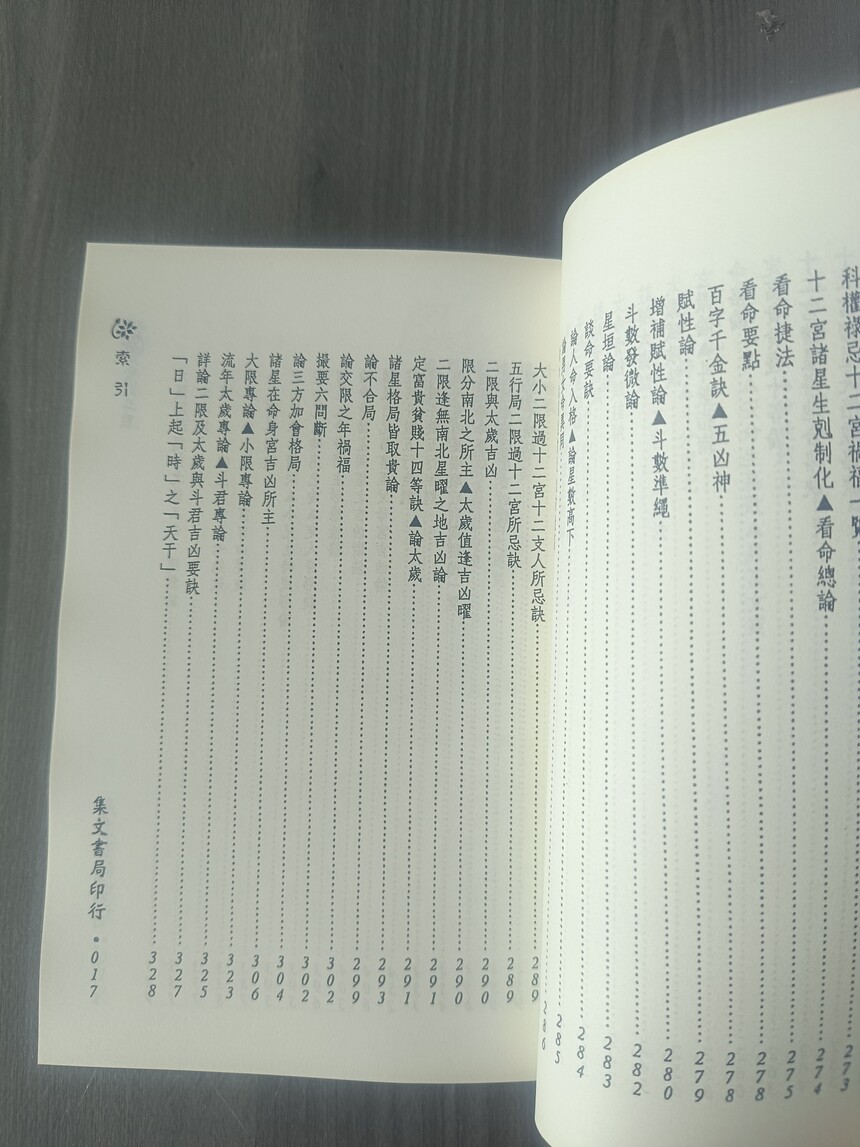 科權祿忌十二宮禍福一覽……273
十二宮諸星生剋制化▲看命總論……274
看命捷法……275
看命要點……278
百字千金訣▲五凶神……278
賦性論……279
增補賦性論▲斗數準繩……280
斗數發微論……282
星垣論……283
談命要訣……284
論人命入格▲論星數高下……285
……286
大小二限過十二宮十二支人所忌訣……289
五行局二限過十二宮所忌訣……289
二限與太歲吉凶……290
限分南北之所主▲太歲值逢吉凶曜……290
二限逢無南北星曜之地吉凶論……291
定富貴貧賤十四等訣▲論太歲……291
諸星格局皆取貴論……293
論不合局……299
論交限之年禍福……302
撮要六問斷……302
論三方加會格局……304
諸星在命身宮吉凶所主……306
大限專論▲小限專論……323
流年太歲專論▲斗君專論……325
詳論二限及太歲與斗君吉凶要訣……327
「日」上起「時」之「天干」……328
索引
集文書局印行•017